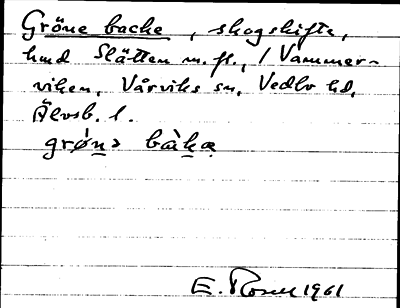 Gröne backe, skogskifte,
hmd Slätten m.fl., / Vammer-
viken, Vårviks sn, Vedbo hd,
Älvsb. l.
grø̀nə bàka
E. Rosell 1961